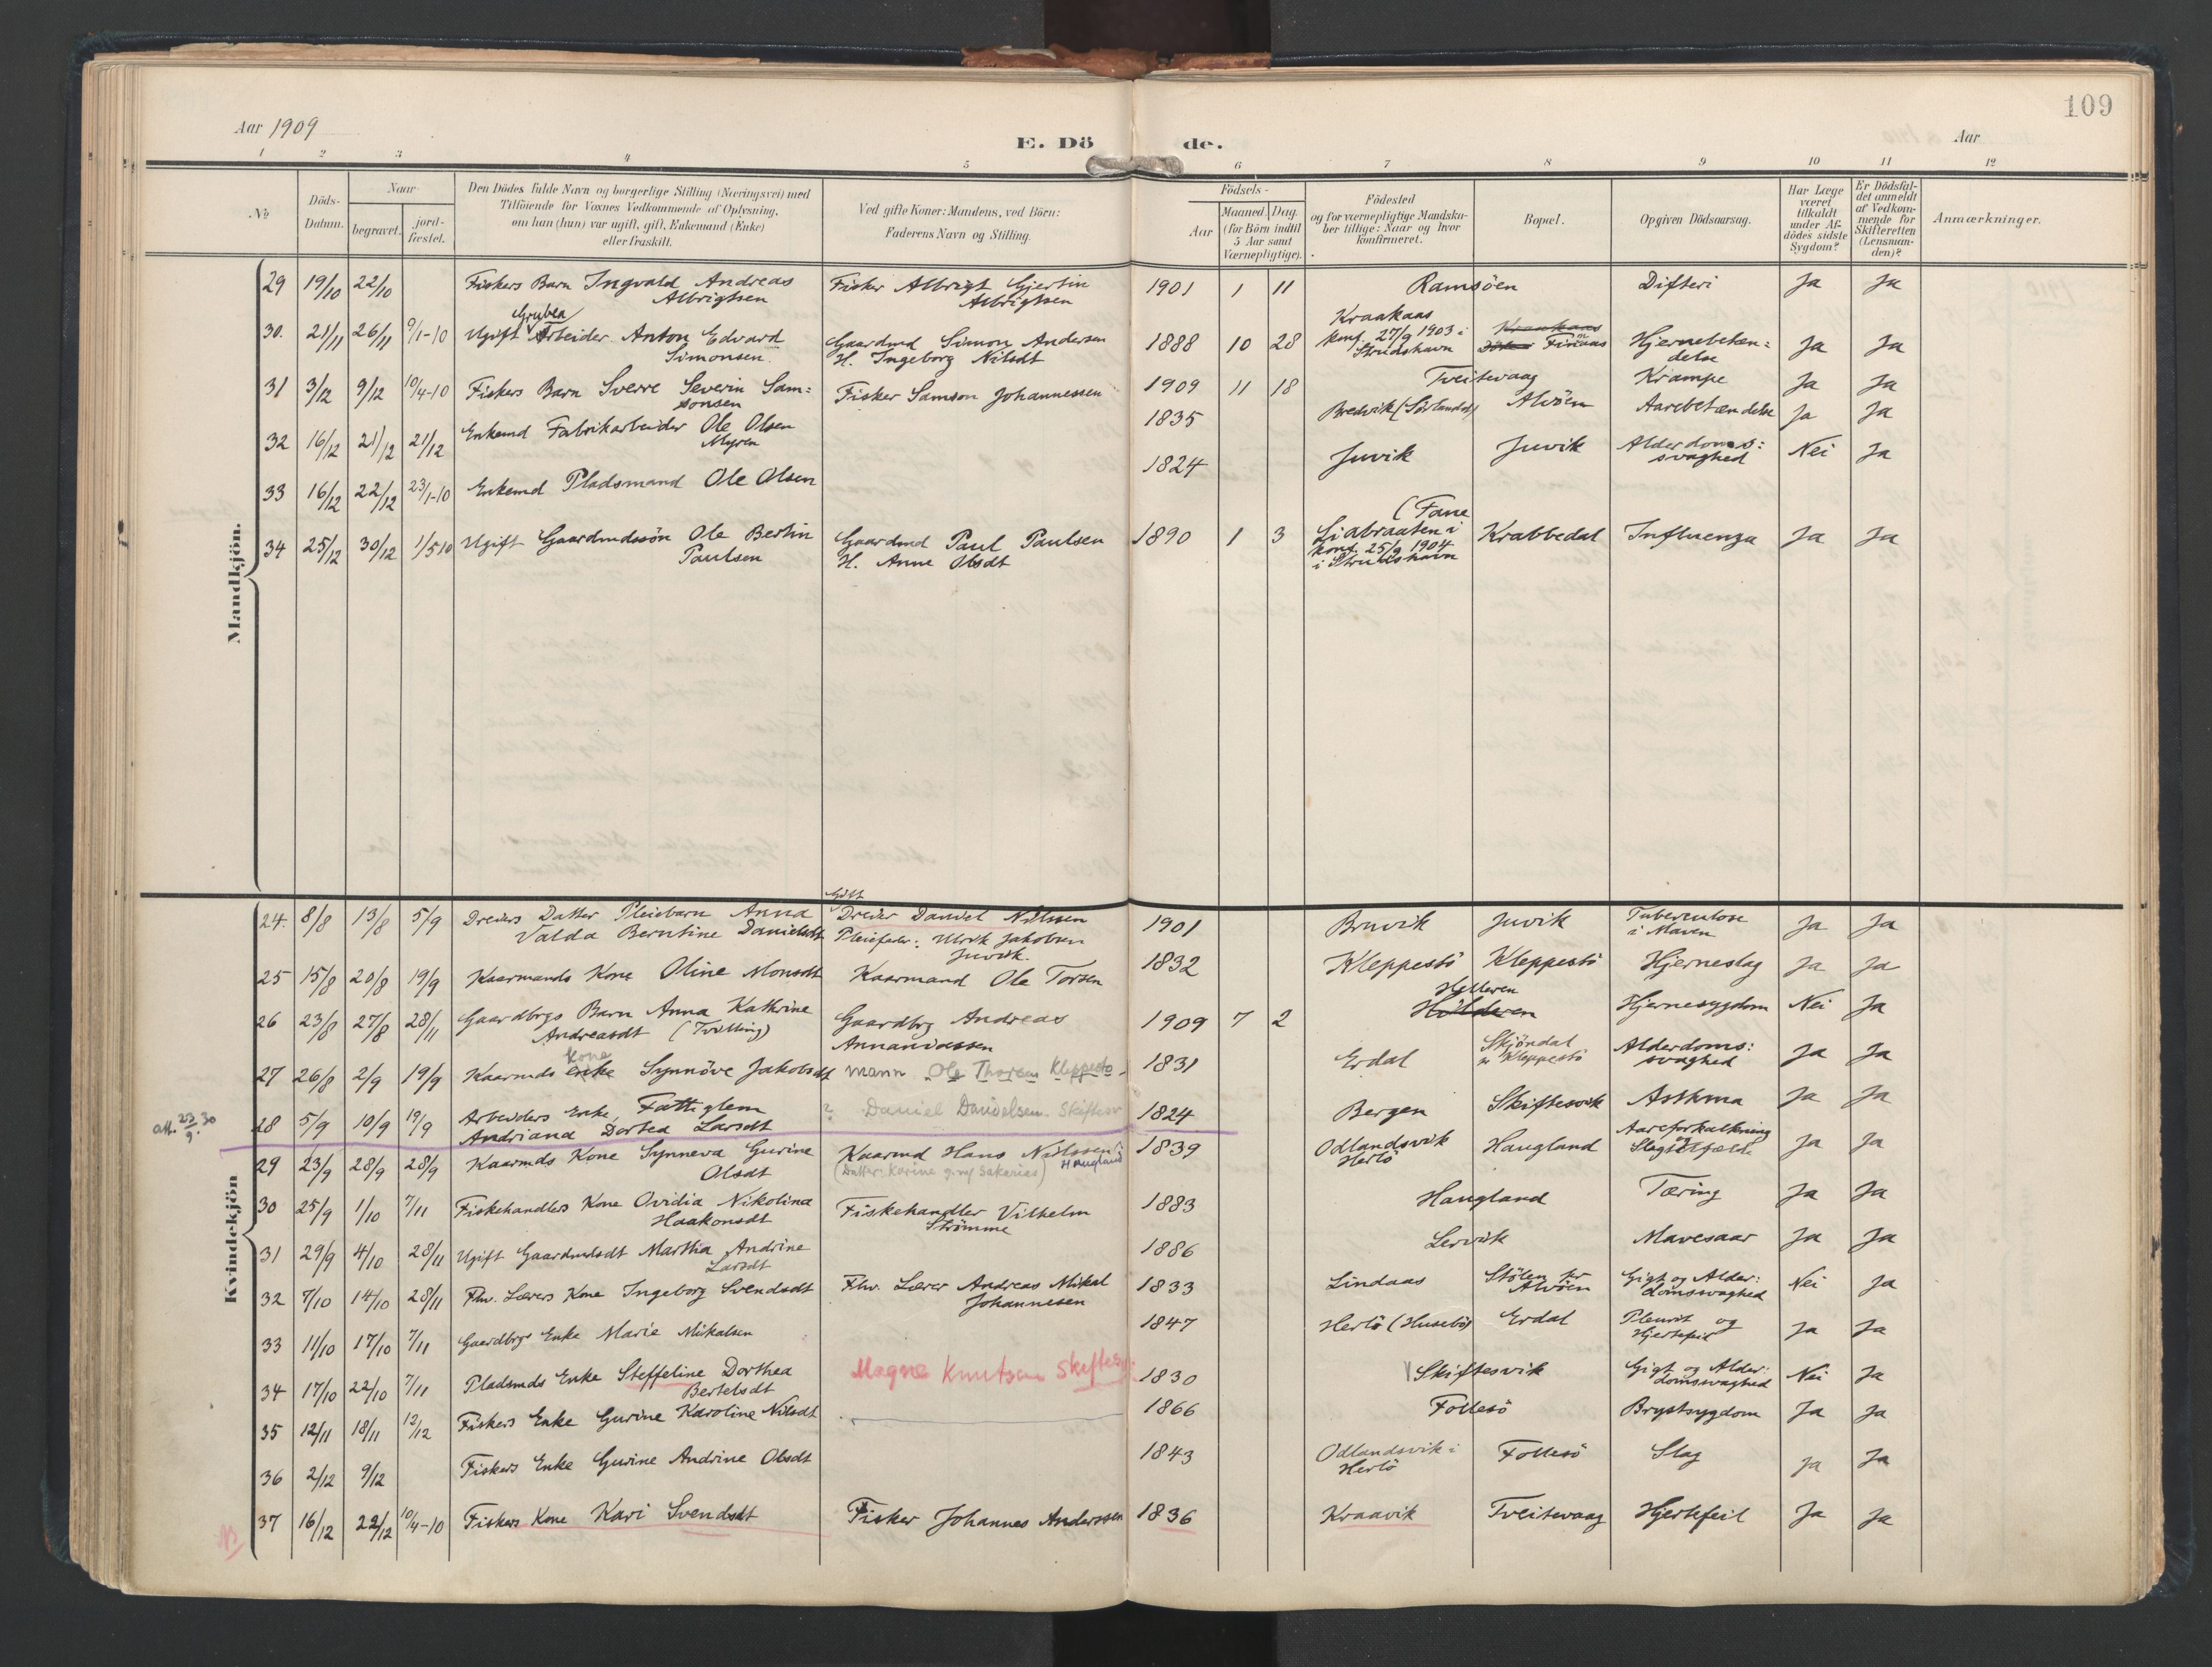 109
Aar 1909
E. Dö
de.
Aar
1 2 3 4 5 6 7 8 9 10 11 12
№
Döds-
Datum.
Naar
begravet.
jord-
fæstet.
Den Dödes fulde Navn og borgerlige Stilling (Næringsvei) med
Tilföiende for Voxnes Vedkommende af Oplysning,
om han (hun) var ugift, gift, Enkemand (Enke)
eller fraskilt.
Ved gifte Koner: Mandens, ved Börn:
Faderens Navn og Stilling.
Födsels-
Aar
Maaned. Dag.
(for Börn indtil
5 Aar samt
Værnepligtige).
Födested
og for værnepligtige Mandska-
ber tillige: Naar og hvor
konfirmeret.
Bopæl.
Opgiven Dödsaarsag.
Har Læge
været
tilkaldt
under Af-
dödes sidste
Sygdom?
Er Dödsfal-
det anmeldt
af Vedkom-
mende for
Skifteretten
(Lensman-
den)?
Anmærkninger.
Mandkjön.
29 19/10 22/10 Fiskers Barn Ingvald Andreas Fisker Albrigt Gjertin 1901 1 11 Ramsöen Difteri Ja Ja
Albrigtsen Albrigtsen
Gruben Kraakaas
30. 21/11 26/11 9/1-10 Ugift Arbeider Anton Edvard Gaardmd Simon Andersen 1888 10 28 konf. 27/9 1903 i Kraakaas Hjernebetæn= Ja Ja
Simonsen. H. Ingeborg Nilsdt Strudshavn Finnaas delse
31 3/12 9/12 10/4-10 Fiskers Barn Sverre Severin Sam= Fisker Samson Johannessen 1909 11 18 Tveitevaag Krampe Ja Ja
sonsen
32 16/12 21/12 21/12 Enkemd Fabrikarbeider Ole Olsen 1835 Bredvik (Sörlandet) Alvöen Aarebetændelse Ja Ja
Myren
33 16/12 22/12 23/1-10 Enkemd Pladsmand Ole Olsen 1824 Juvik Juvik Alderdoms= Nei Ja
svaghed
(Fane
34 25/12 30/12 1/5 10 Ugift Gaardmdssön Ole Bertin Gaardmd Paul Paulsen 1890 1 3 Liabraaten i Krabbedal Influenza Ja Ja
Paulsen H. Anne Olsdt konf. 25/9 1904
i Strudshavn
Kvindekjön
Gift
24. 8/8 13/8 5/9 Dreiers Datter Pleiebarn Anna Dreier Daniel Nilssen 1901 Bruvik Juvik Tuberculose Ja Ja
Valda Berntine Danielsdt Pleiefader: Ulrik Jakobsen i Maven
Juvik.
25 15/8 20/8 19/9 Kaarmands Kone Oline Monsdt Kaarmand Ole Torsen 1832 Kleppestö Kleppestö Hjerneslag Ja Ja
Helleren
26 23/8 27/8 28/11 Gaardbrgs Barn Anna Kathrine Gaardbrg Andreas 1909 7 2 Hjernesygdom Nei Ja
Andreasdt (Tvilling) Annaniassen
kone
27 26/8 2/9 19/9 Kaarmds Enke Synnöve Jakobsdt mann Ole Thorsen Kleppestö 1831 Erdal Skjöndal Alderdoms= Ja Ja
n Kleppestö svaghed
att. 23/9.30
28 5/9 10/9 19/9 Arbeiders Enke, Fattiglem ? Daniel Danielsen. Skiftesv 1824 Bergen Skiftesvik Asthma Ja Ja
Andriana Dortea Larsdt
29 23/9 28/9 28/9 Kaarmds Kone Synneva Gurine Kaarmd Hans Nilssen 1839 Odlandsvik Haugland Aareforkalkning Ja Ja
Olsdt (Datter: Karine g. m/ Sakarias) Haugland Herlö og Slagtilfælde
30 25/9 1/10 7/11 Fiskehandlers Kone Ovidia Nikolina Fiskehandler Vilhelm 1883 Haugland Tæring Ja Ja
Haakonsdt Strömme
31 29/9 4/10 28/11 Ugift Gaardmdsdt Martha Andrine 1886 Lervik Mavesaar Ja Ja
Larsdt
32 7/10 14/10 28/11 Fhv. Lærers Kone Ingeborg Svendsdt Fhv. Lærer Andreas Mikal 1833 Lindaas Stölen pr Gigt og Alder= Nei Ja
Johannesen Alvöen domssvaghed
33 11/10 17/10 7/11 Gaardbrgs Enke Marie Mikalsen 1847 Herlö (Husebö) Erdal Pleurit og Ja Ja
Hjertefeil
34 17/10 22/10 7/11 Pladsmds Enke Steffeline Dorthea Magne Knutsen Skiftesv. 1830 Skiftesvik Gigt og Alder= Nei Ja
Bertelsdt domssvaghed
35 12/11 18/11 12/12 Fiskers Enke Gurine Karoline Nilsdt 1866 Follesö Brystsygdom Ja Ja
36 2/12 9/12 Fiskers Enke Gurine Andrine Olsdt 1843 Odlandsvik i Follesö Slag Ja Ja
Herlö
37 16/12 22/12 10/4-10 Fiskers Kone Kari Svendsdt Fisker Johannes Anderssen 1836 Kraavik Tveitevaag Hjertefeil Ja Ja